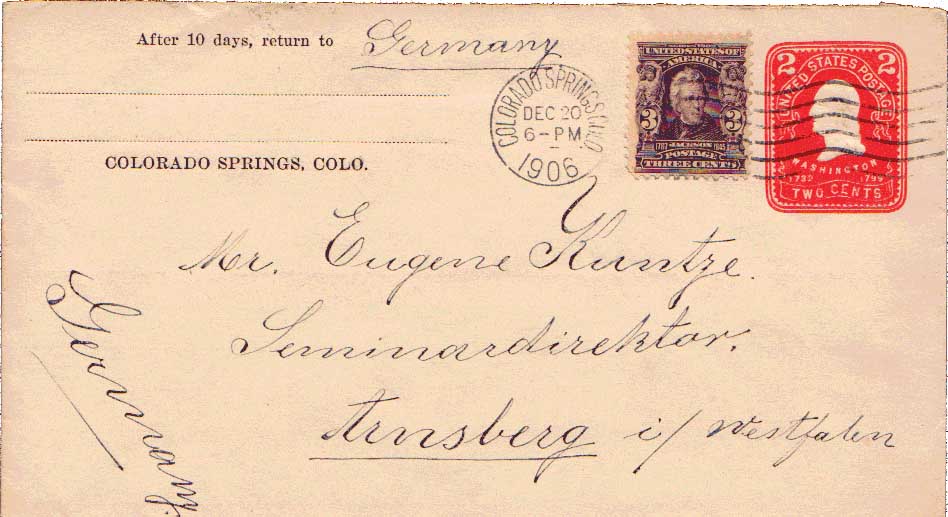 After 10 days, return to Germany
COLORADO SPRINGS, COLO.
COLORADO SPRINGS, COLO
DEC 20
6-PM
1906
UNITED STATES OF
AMERICA
3 3
1767 JACKSON 1845
POSTAGE
THREE CENTS
2 2
UNITED STATES POSTAGE
WASHINGTON
1732 1799
TWO CENTS
Mr. Eugene Kuntze.
Seminardirektor.
Arnsberg i/ Westfalen
Germany.